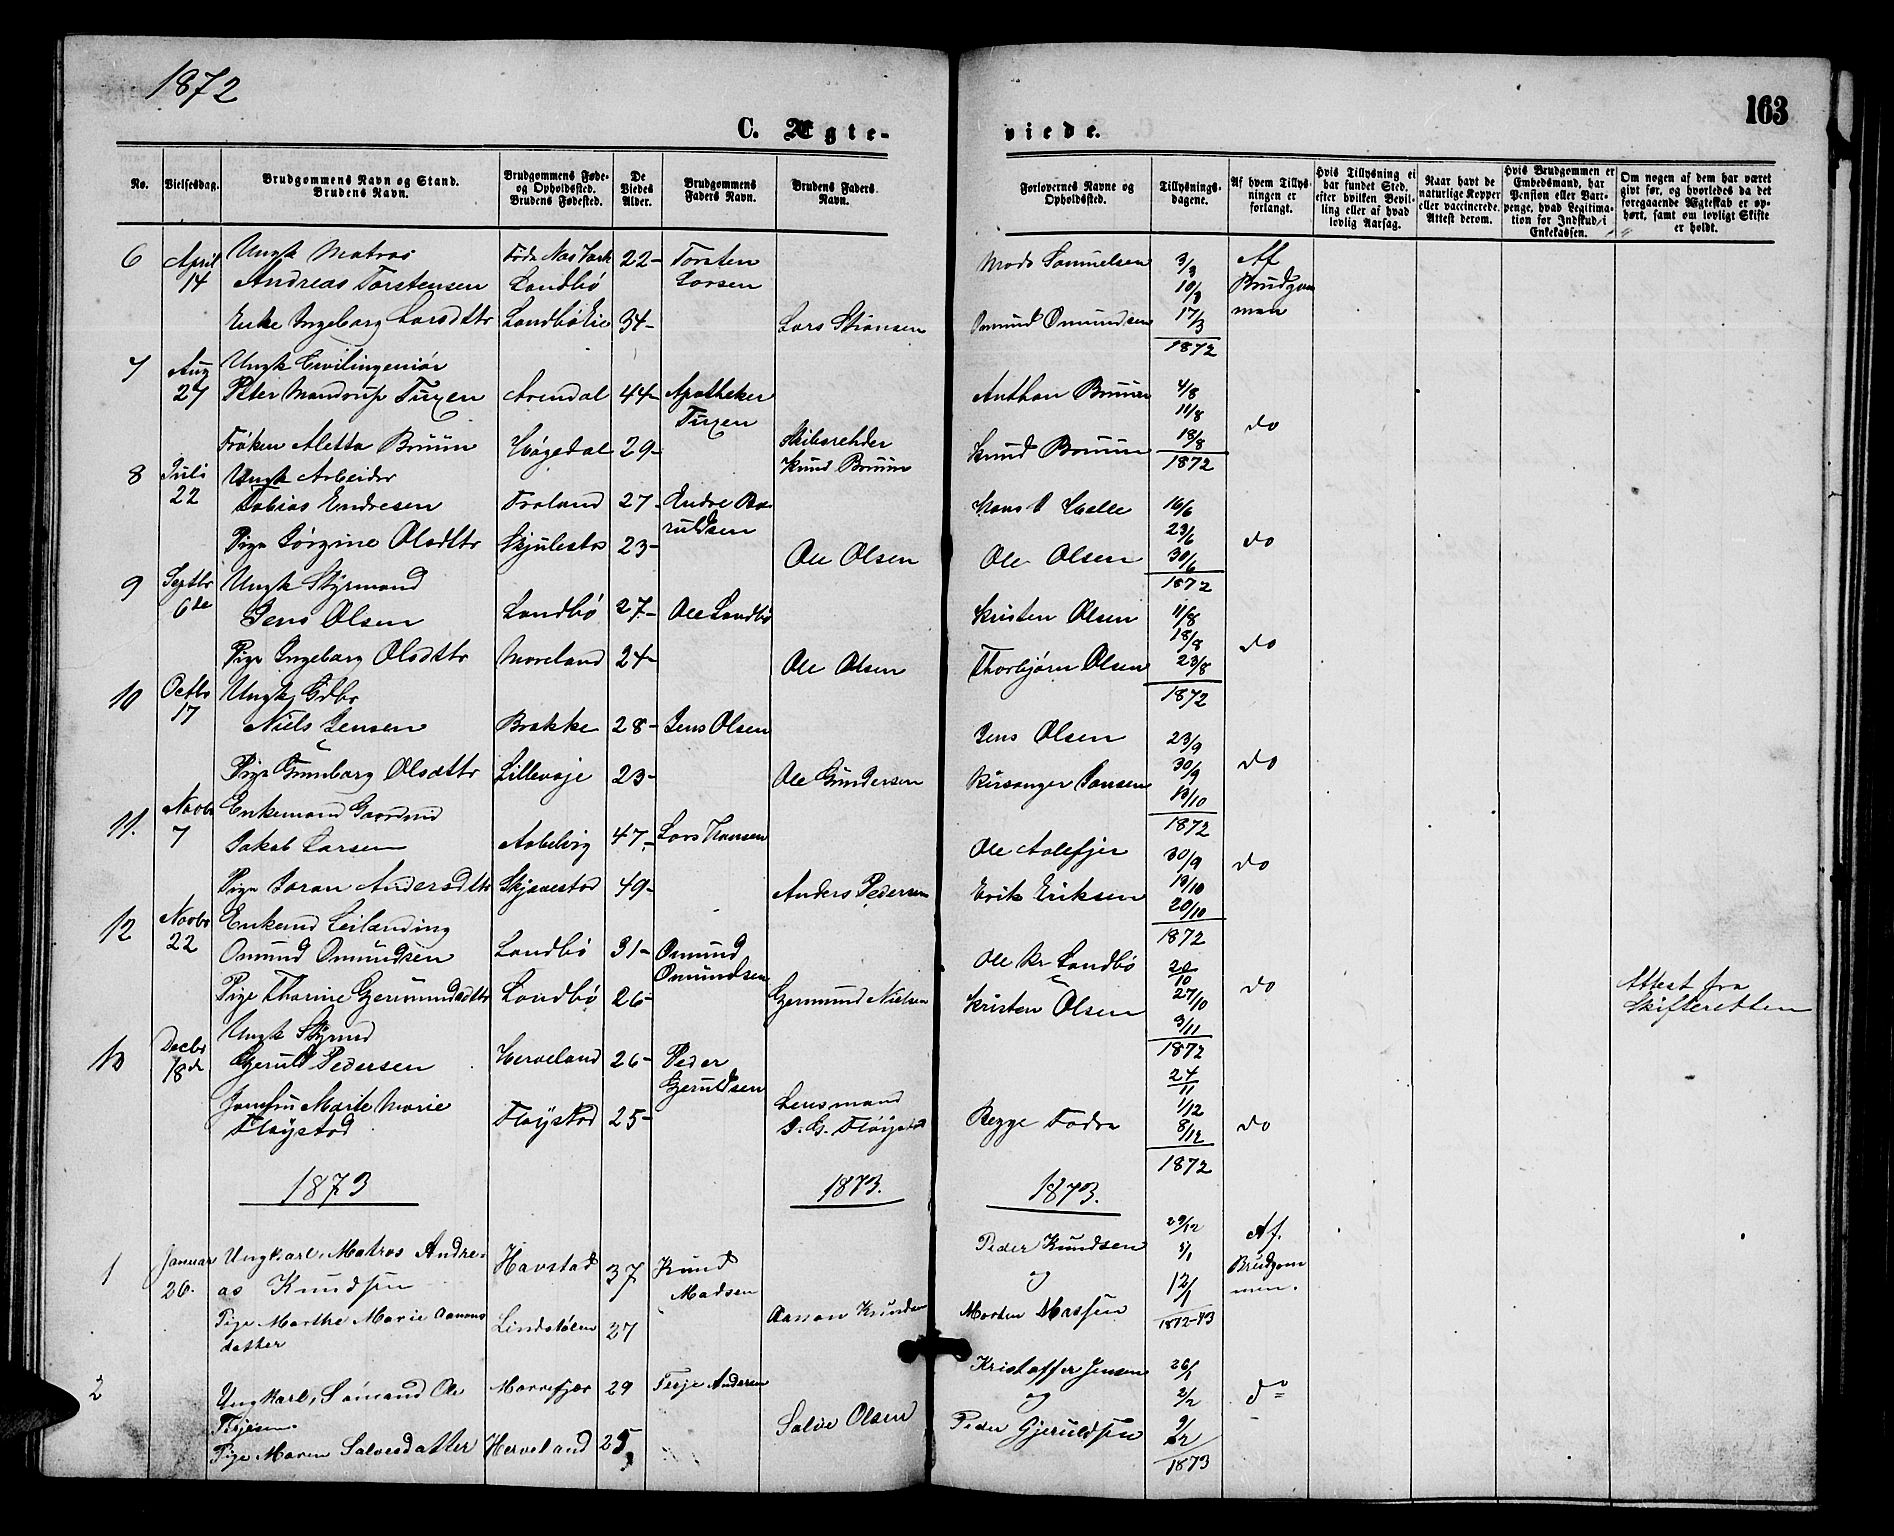 1872
163
C. Ægte-
viede.
No.
Vielsesdag.
Brudgommens Navn og Stand.
Brudens Navn.
Brudgommens Føde-
og Opholdssted.
Brudens Fødested.
De
Viedes
Alder.
Brudgommens
Faders Navn.
Brudens Faders
Navn.
Forlovernes Navne og
Opholdssted.
Tillysnings-
dagene.
Af hvem Tillys-
ningen er
forlangt.
Hvis Tillysning ei
har fundet Sted,
efter hvilken Bevil-
ling eller af hvad
lovlig Aarsag.
Naar havt de
naturlige Kopper
eller vaccinerede.
Attest derom.
Hvis Brudgommen er
Embedsmand, har
Pension eller Vart-
penge, hvad Legitima-
tion for Indskud i
Enkekassen.
Om nogen af dem har været
givt før, og hvorledes da det
foregaaende Ægteskab er op-
hørt, samt om lovligt Skifte
er holdt.
6 April 14
Ungk Matros
Andreas Torstensen Landbø 22- Torsten Larsen
Mads Samuelsen 3/3 10/3 Af Brudgom
Enke Ingeborg Larsdttr 34- Lars
Omund Omundsen 17/3 men
1872
7 Aug 27
Ungk Civilingeniør
Peter Mandrup Tuxen Arendal 44- Apotheker Tuxen
Anthon Bruun 4/8 11/8 do
Frøken Aletta Bruun Høgedal 29- Skibsrehder Knud Bruun
Knud Bruun 18/8
1872
8 Juli 22
Ungk Arbeider
Tobias Endresen Froland 27-
Hans 16/6 23/6 do
Pige Jørgine Olsdttr Skjulestad 23- Ole Olsen
Ole Olsen 30/6
1872
9 Septbr 6te
Ungk Styrmand
Jens Olsen Landbø 27- Ole Landbø
Kristen Olsen 11/8 18/8 do
Pige Ingeborg Olsdttr Moreland 24- Ole Olsen
Thorbjørn Olsen 23/8
1872
10 Octbr 17
Ungk Gdbr
Niels Jensen Brekke 28- Jens Olsen
Jens Olsen 23/9 30/9 do
Pige Gunborg Olsdttr Lillevaje 23- Ole Gundersen
13/10
1872
11. Novbr 7
Enkemand Gaardmd
Jakob Larsen 47- Lars Hansen
Ole Aalefjer 30/9 do
Pige Joran Andersdttr Skjævestad 49- Anders Pedersen
Erik Eriksen 13/10 20/10
1872
12 Novbr 22
Enkemd Leilænding
Omund Omundsen Landbø 31- Omund Omundsen
Ole Kr Landbø 20/10 27/10 do Attest fra
Pige Tharine Gjermundsdttr Landbø 26- Gjermund Nielsen
Kristen Olsen 3/11 Skifteretten
1872
13 Decbr 18de
Ungk Styrmd
Gjeruld Pedersen Herveland 26- Peder Gjeruldsen
24/11 1/12
Jomfru Marte Marie
Fløystad Fløystad 25- Lensmand
8/12 do
1872
1873
1873.
1873.
1 Januar 26.
Ungkarl, Matros Andre-
as Knudsen Havstad 37 Knud Madsen
Peder Knudsen 29/12 Af.
og 12/1 Brudgom
men.
Pige Marthe Marie Aanons
datter 27 Aanon Knudsen
Morten 1872-73
2
Ungkarl, Sømand Ole
Terjesen 29 Terje Andersen
Kristoffer Jensen 26/1
og 2/2 do
Pige Maren Salvesdatter Herveland 25 Salve Olsen
Peder Gjeruldsen 9/2
1873